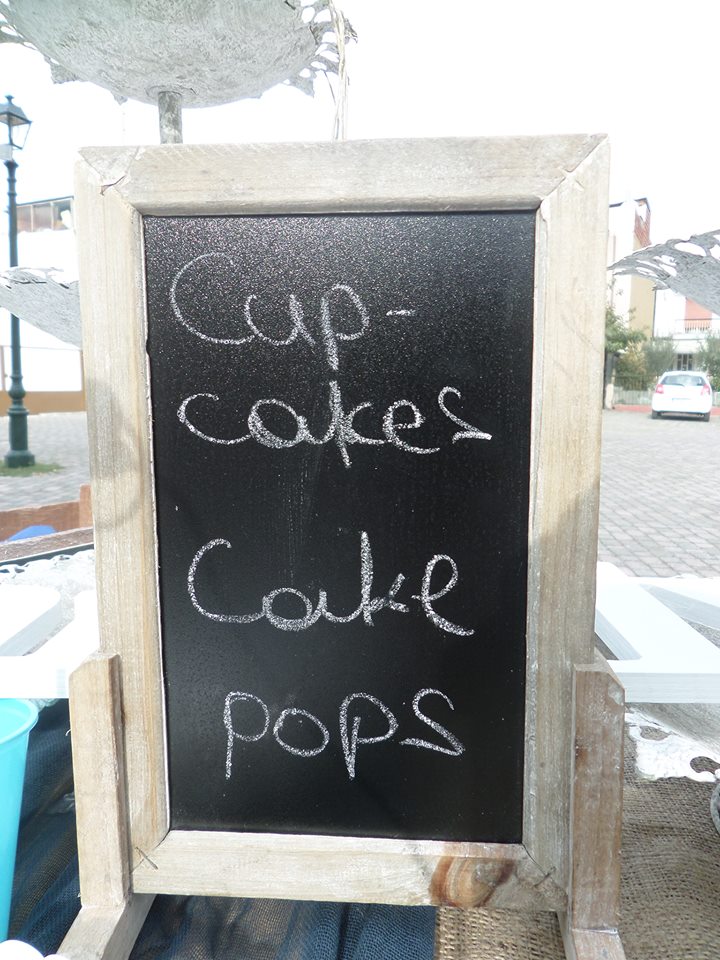 Cup-
cakes
Cake
pops